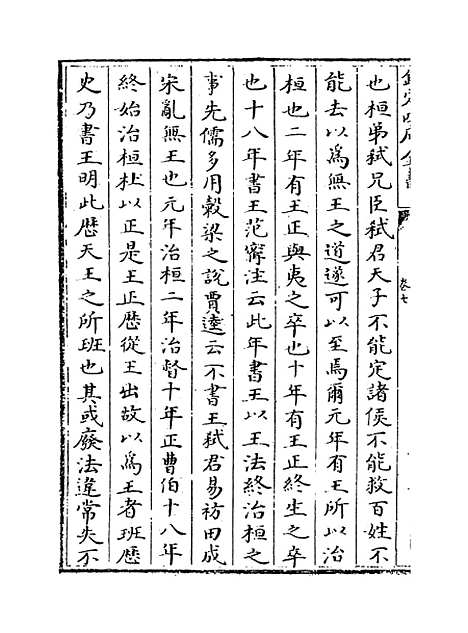 欽定四庫全書
卷七
也桓弟弑兄臣弑君天子不能定諸侯不能救百姓不
能去以爲無王之道遂可以至焉爾元年有王所以治
桓也二年有王正與夷之卒也十年有王正終生之卒
也十八年書王范甯注云此年書王以王法終治桓之
事先儒多用穀梁之說賈逵云不書王弑君易祊田成
宋亂無王也元年治桓二年治督十年正曹伯十八年
終始治桓杜以正是王正歴從王出故以爲王者班歴
史乃書王明此歴天王之所班也其或廢法違常失不